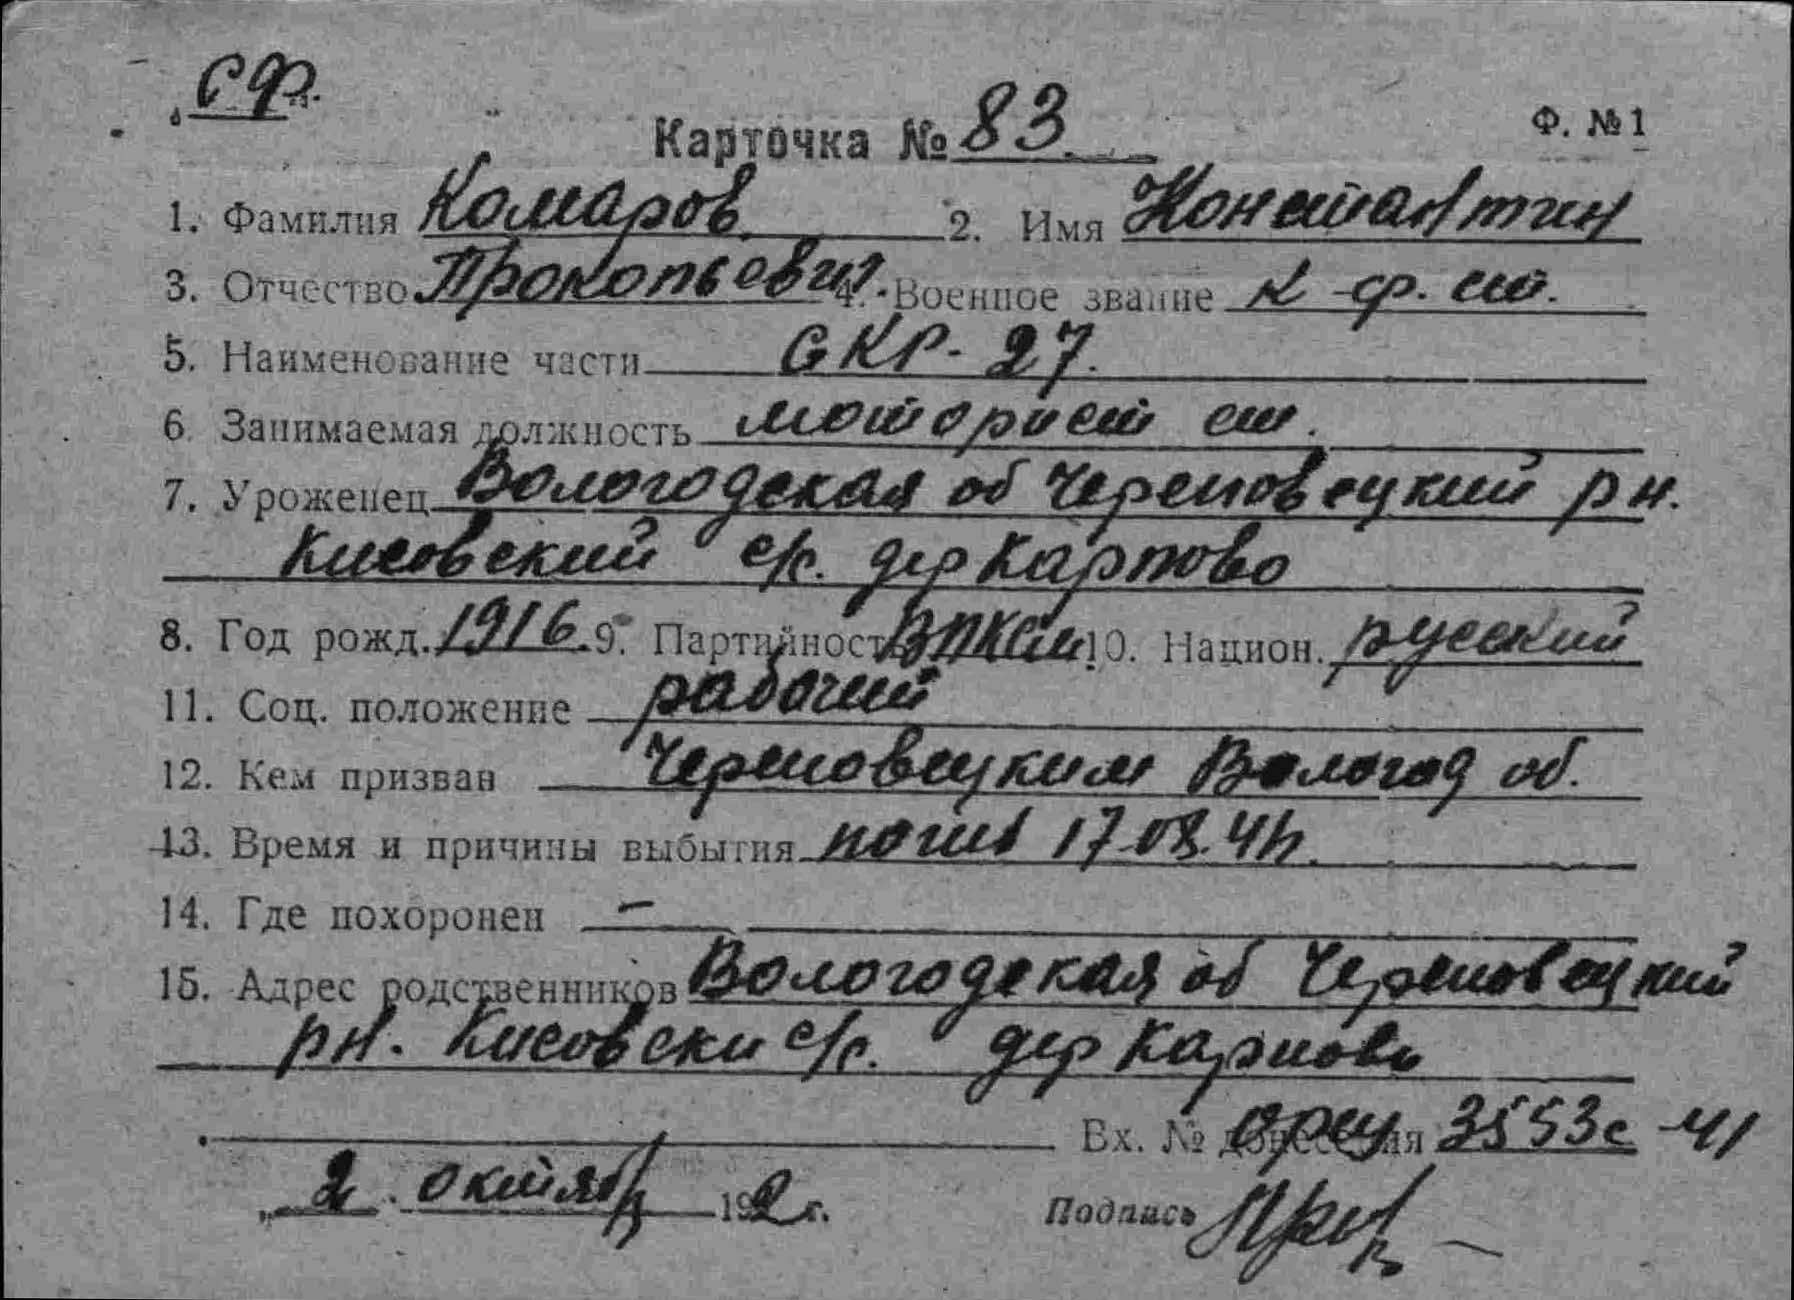 СФ.
Карточка № 83. Ф. № 1
1. Фамилия Комаров 2. Имя Константин
3. Отчество Прокопьевич 4. Военное звание к-ф. ст.
5. Наименование части СКР-27.
6. Занимаемая должность моторист ст.
7. Уроженец Вологодская об Череповецкий рн.
Кисовский с/с. дер Карпово
8. Год рожд. 1916. 9. Партийность 10. Национ. русский
11. Соц. положение рабочий
12. Кем призван Череповецким Вологод об.
13. Время и причины выбытия погиб 17-08.41г.
14. Где похоронен —
15. Адрес родственников Вологодская об Череповецкий
рн. Кисовски с/с. дер Карпово
Вх. № донесения 3553с-41
„2. октября 192г.
Подпись